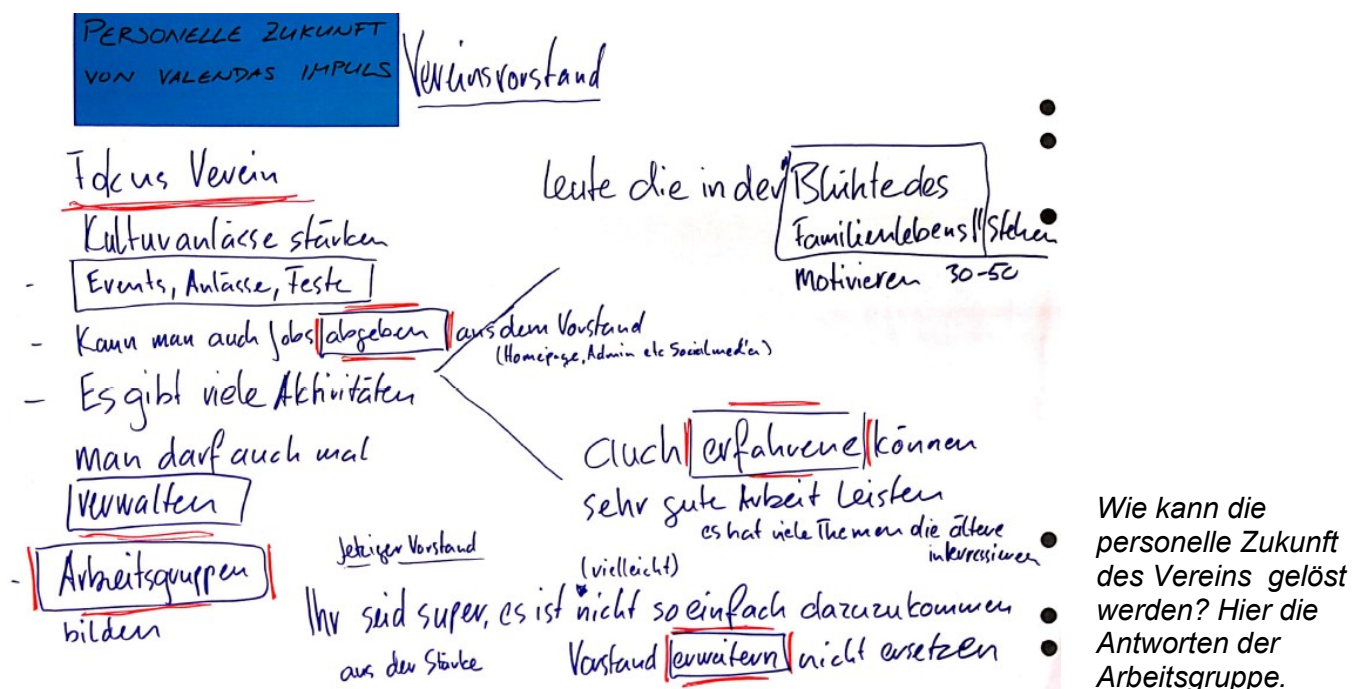 PERSONELLE ZUKUNFT
VON VALENDAS IMPULS
Vereinsvorstand
Fokus Verein
Kulturanlässe stärken
- Events, Anlässe, Feste
- Kann man auch Jobs abgeben aus dem Vorstand
(Homepage, Admin etc Socialmedia)
- Es gibt viele Aktivitäten
man darf auch mal
verwalten
- Arbeitsgruppen
bilden
Leute die in der "Blühte des
Familienlebens" stehen
motivieren 30-50
auch erfahrene können
sehr gute Arbeit leisten
es hat viele Themen die ältere
interressieren
Jetziger Vorstand
(vielleicht)
Ihr seid super, es ist nicht so einfach dazuzukommen
aus der Stärke
Vorstand erweitern nicht ersetzen
Wie kann die
personelle Zukunft
des Vereins gelöst
werden? Hier die
Antworten der
Arbeitsgruppe.